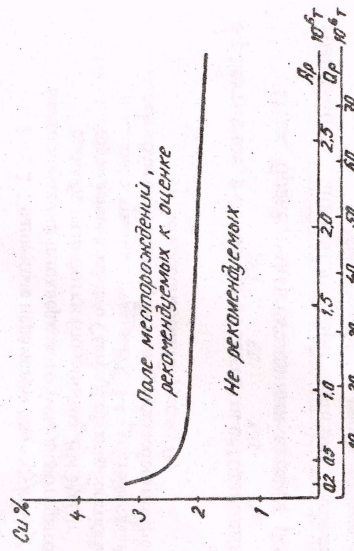 Cu %
4
3
2
1
Поле месторождений,
рекомендуемых к оценке
Не рекомендуемых
0.2 0.5 1.0 1.5 2.0 2.5 Ap 10⁶т
10 20 30 40 50 60 70 Qp 10⁶т